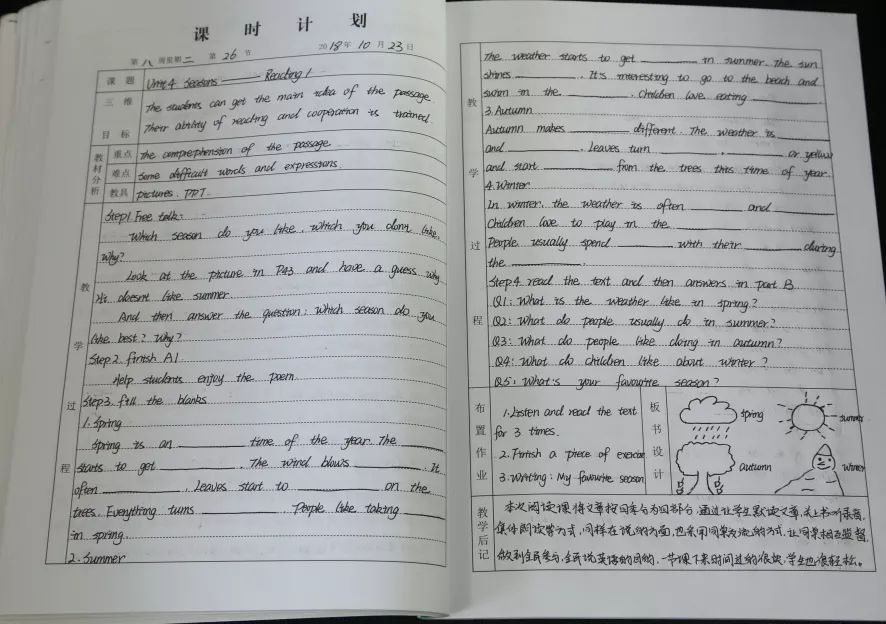 课 时 计 划
第 八 周星期 二 第 26 节 2018年 10 月 23 日
课 题 Unit 4 Seasons ——— Reading 1
三 维 目 标 The students can get the main idea of the passage.
Their ability of reading and cooperation is trained.
教材分析 重点 The comprehension of the passage
难点 Some difficult words and expressions.
教具 pictures. PPT.
教 学 过 程
Step1. Free talk:
Which season do you like, which you don't like.
Why?
Look at the picture in P43 and have a guess why
doesn't like summer.
And then answer the question: Which season do you
like best? Why?
Step 2. finish A1
Help students enjoy the poem.
Step3. fill the blanks
1. Spring
Spring is an ______ time of the year. The ______
starts to get ______. The wind blows ______. It
often ______. Leaves start to ______ on the
trees. Everything turns ______. People like taking ______
in spring.
2. Summer
The weather starts to get ______ in summer. The sun
shines ______. It's interesting to go to the beach and
swim in the ______. Children love eating ______.
3. Autumn
Autumn makes ______ different. The weather is ______
and ______. Leaves turn ______, ______ or yellow
and start ______ from the trees this time of year.
4. Winter
In winter, the weather is often ______ and ______
Children love to play in the ______.
People usually spend ______ with their ______ during
the ______.
Step 4. read the text and then answers in part B.
Q1: What is the weather like in spring?
Q2: What do people usually do in summer?
Q3: What do people like doing in autumn?
Q4: What do children like about winter?
Q5: What's your favourite season?
教 学 过 程
布置作业
1. Listen and read the text
for 3 times.
2. Finish a piece of exercise
3. Writing: My favourite season
板书设计
spring summer
autumn winter
教学后记
本次阅读课将文章按四季分为四部分,通过让学生默读文章,
集体朗读等方式,同样在说的方面,也采用同桌交流的方式,让同桌相互监督,
做到全民参与,全民说英语的目的,一节课下来时间过的很快,学生也很轻松。